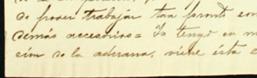 de poder trabajar tan pronto como
demás accesorios = Ya tengo en m
cim de la aduana, viene ésta c